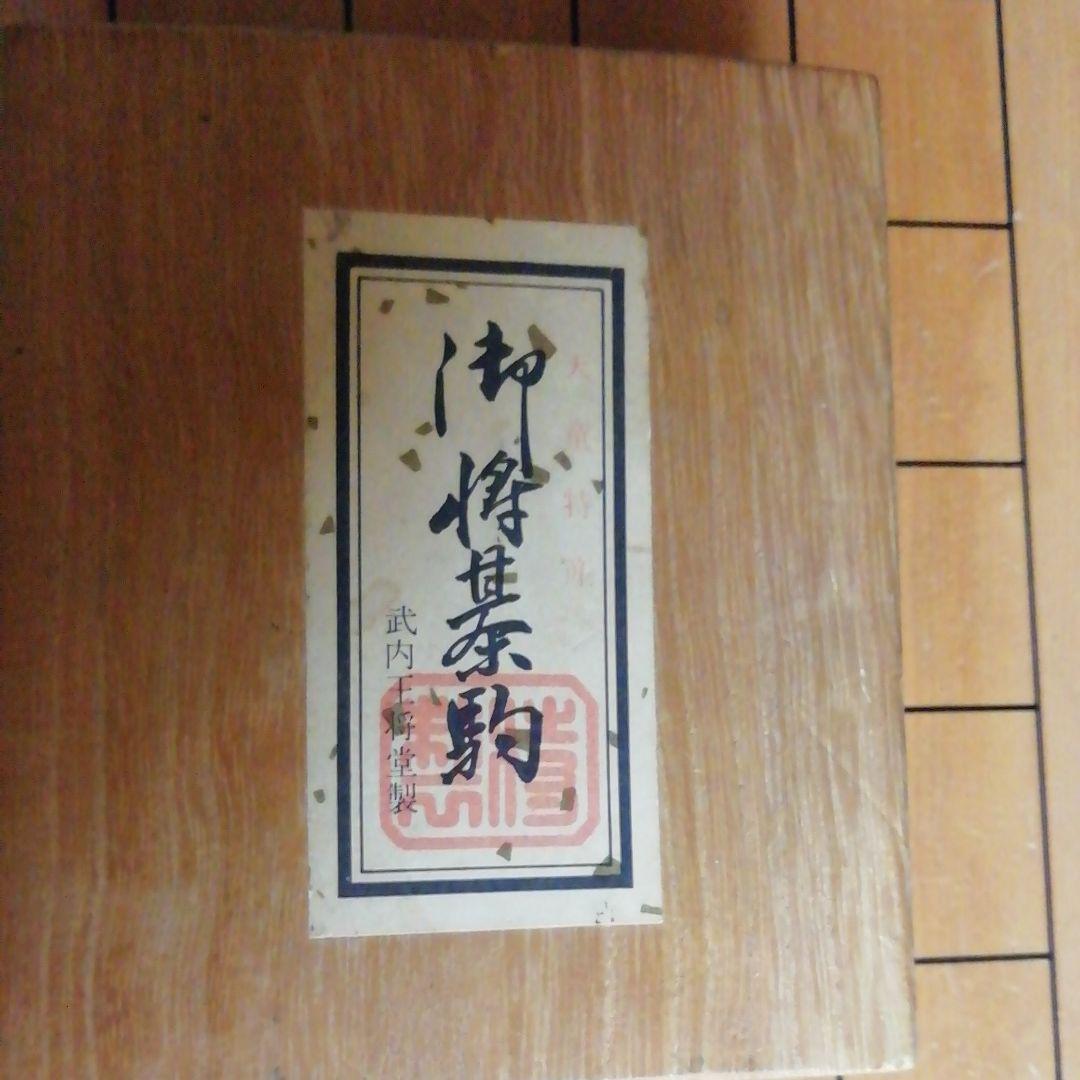 天童特産
御将棊駒
武内王将堂製